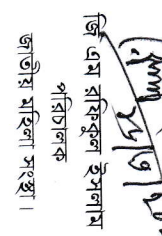 জি এম রফিকুল ইসলাম
পরিচালক
জাতীয় মহিলা সংস্থা।